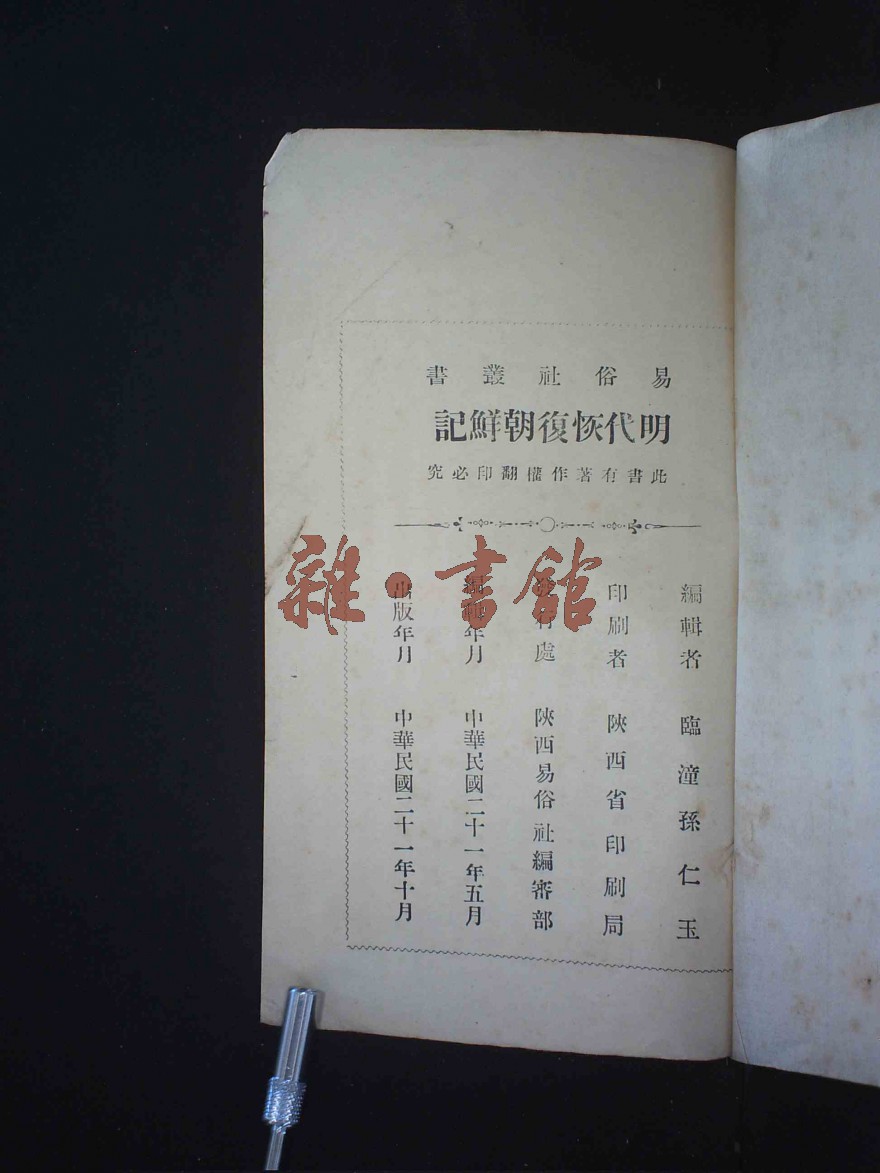 易俗社叢書
明代恢復朝鮮記
此書有著作權翻印必究
編輯者 臨潼孫仁玉
印刷者 陝西省印刷局
發行處 陝西易俗社編審部
編輯年月 中華民國二十一年五月
出版年月 中華民國二十一年十月
雜·書館